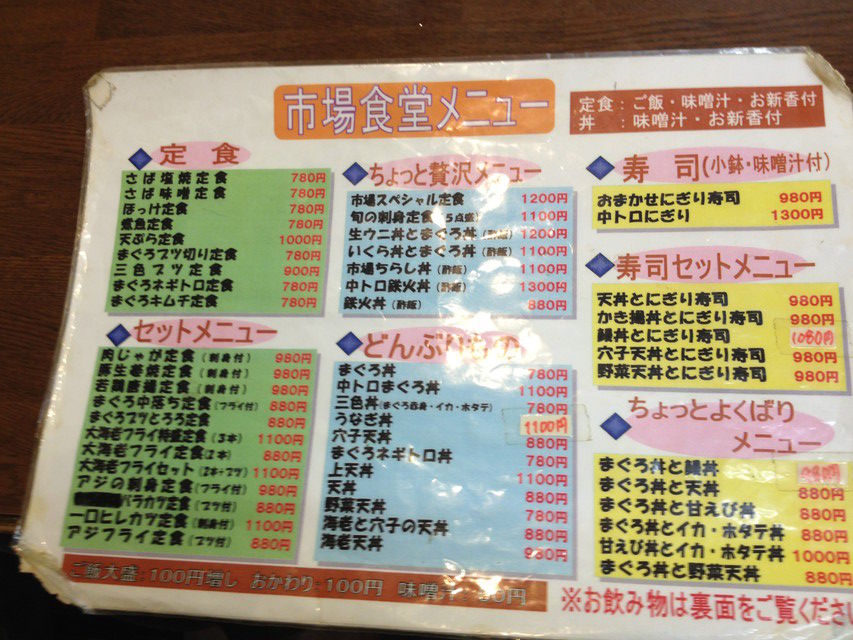 市場食堂メニュー
定食：ご飯・味噌汁・お新香付
丼　：味噌汁・お新香付
定食
さば塩焼定食 780円
さば味噌定食 780円
ほっけ定食 780円
煮魚定食 780円
天ぷら定食 1000円
まぐろブツ切り定食 780円
三色ブツ定食 900円
まぐろネギトロ定食 780円
まぐろキムチ定食 780円
セットメニュー
肉じゃが定食（刺身付） 980円
豚生姜焼定食（刺身付） 980円
若鶏唐揚定食（刺身付） 980円
まぐろ中落ち定食（フライ付） 880円
まぐろブツとろろ定食 780円
大海老フライ特盛定食（3本） 1100円
大海老フライ定食（2本） 880円
大海老フライセット（2本・ブツ） 1100円
アジの刺身定食（フライ付） 980円
バラカツ定食（ブツ付） 880円
一口ヒレカツ定食（刺身付） 1100円
アジフライ定食（ブツ付） 880円
ちょっと贅沢メニュー
市場スペシャル定食 1200円
旬の刺身定食（5点盛） 1100円
生ウニ丼とまぐろ丼（酢飯） 1200円
いくら丼とまぐろ丼（酢飯） 1100円
市場ちらし丼（酢飯） 1100円
中トロ鉄火丼（酢飯） 1300円
鉄火丼（酢飯） 880円
どんぶりもの
まぐろ丼 780円
中トロまぐろ丼 1100円
三色丼（まぐろ赤身・イカ・ホタテ） 780円
うなぎ丼 1100円
穴子天丼 880円
まぐろネギトロ丼 780円
上天丼 1100円
天丼 880円
野菜天丼 780円
海老と穴子の天丼 880円
海老天丼 980円
寿司（小鉢・味噌汁付）
おまかせにぎり寿司 980円
中トロにぎり 1300円
寿司セットメニュー
天丼とにぎり寿司 980円
かき揚丼とにぎり寿司 980円
鰻丼とにぎり寿司 1080円
穴子天丼とにぎり寿司 980円
野菜天丼とにぎり寿司 980円
ちょっとよくばり
メニュー
まぐろ丼と鰻丼
まぐろ丼と天丼 880円
まぐろ丼と甘えび丼 880円
まぐろ丼とイカ・ホタテ丼 880円
甘えび丼とイカ・ホタテ丼 1000円
まぐろ丼と野菜天丼 880円
ご飯大盛：100円増し おかわり：100円 味噌汁
※お飲み物は裏面をご覧くださ